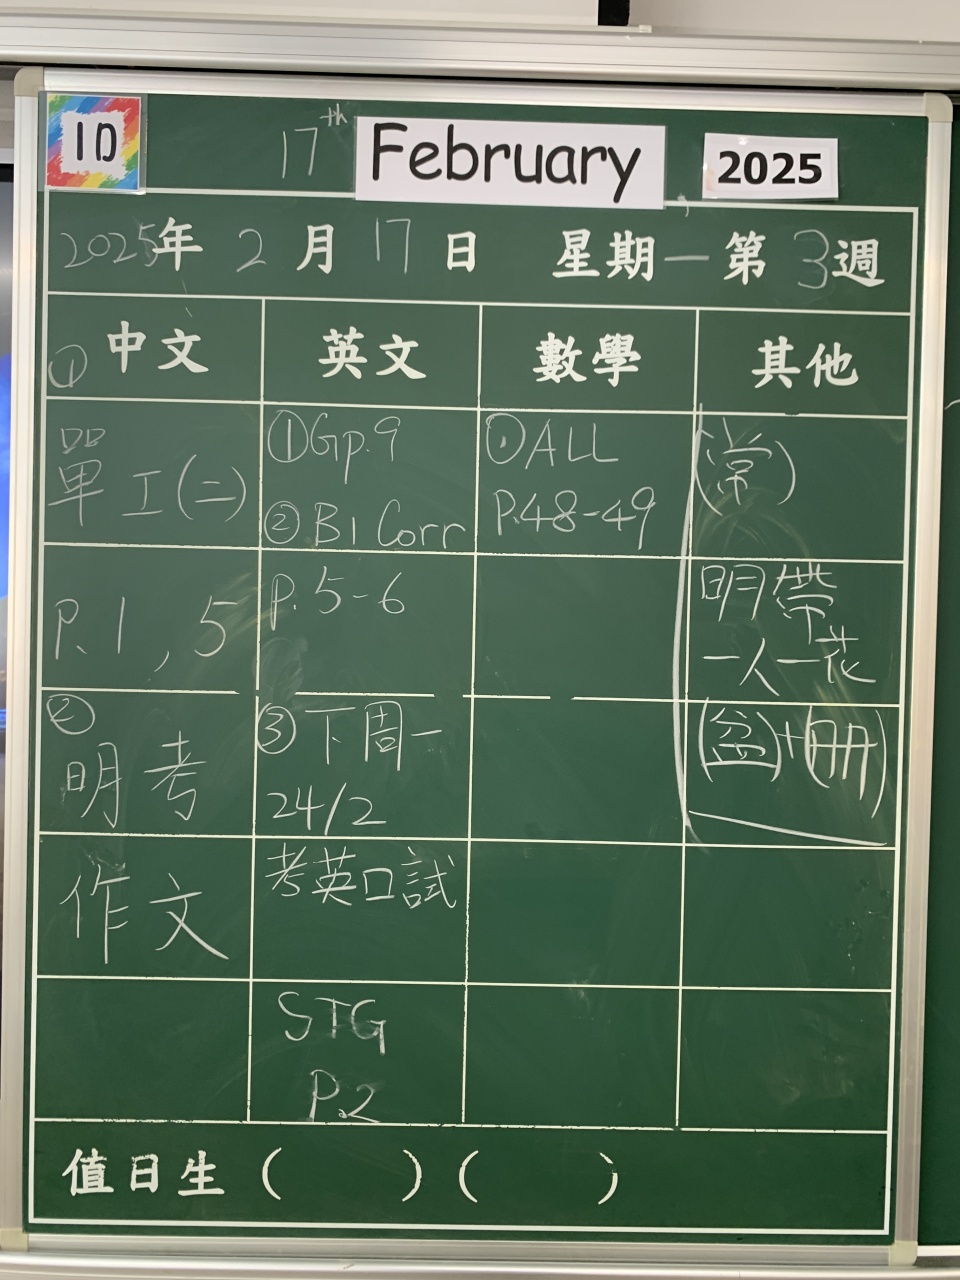 1D
17th February 2025
2025年 2月 17日 星期一 第3週
① 中文 英文 數學 其他
單工(二)
P.1, 5
② 明考
作文
① Gp.9
② B1 Corr
p. 5-6
③ 下周一
24/2
考英口試
STG
P.2
① ALL
P.48-49
(常)
明帶
一人一花
(盆)+(冊)
值日生 ( ) ( )